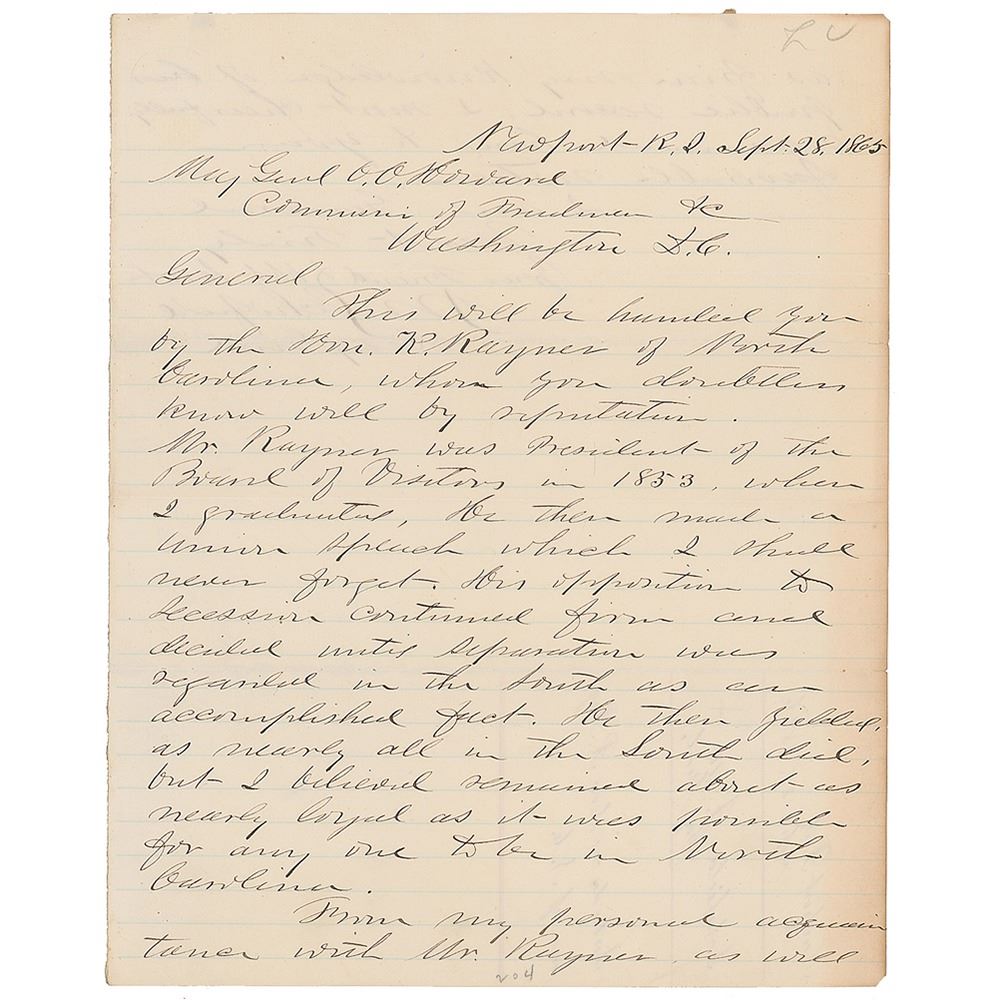 L U
Newport R.I. Sept. 28, 1865
Maj Genl O.O. Howard
Commissr of Freedmen &c
Washington D.C.
General
This will be handed you
by the Hon. K. Rayner of North
Carolina, whom you doubtless
know well by reputation.
Mr. Rayner was President of the
Board of Visitors in 1853, when
I graduated, He then made a
Union speech which I shall
never forget. His opposition to
secession continued firm and
decided until separation was
regarded in the South as an
accomplished fact. He then yielded,
as nearly all in the South did,
but I believed remained about as
nearly loyal as it was possible
for any one to be in North
Carolina.
From my personal acquain
tance with Mr. Rayner as well
204